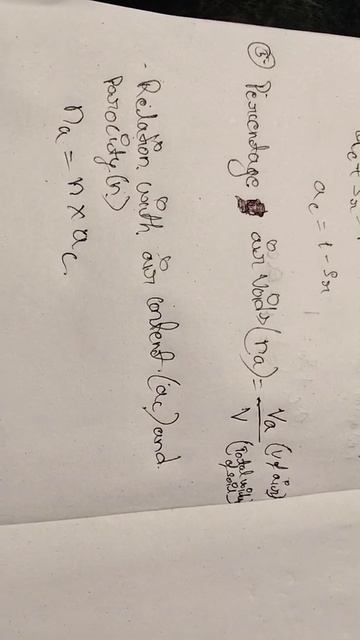 ac = 1 - Sr
⑤ Percentage air voids (na) = Va (V of air) / V (Total vol. of soil)
- Relation with air content (ac) and
Porocity (n)
na = n × ac